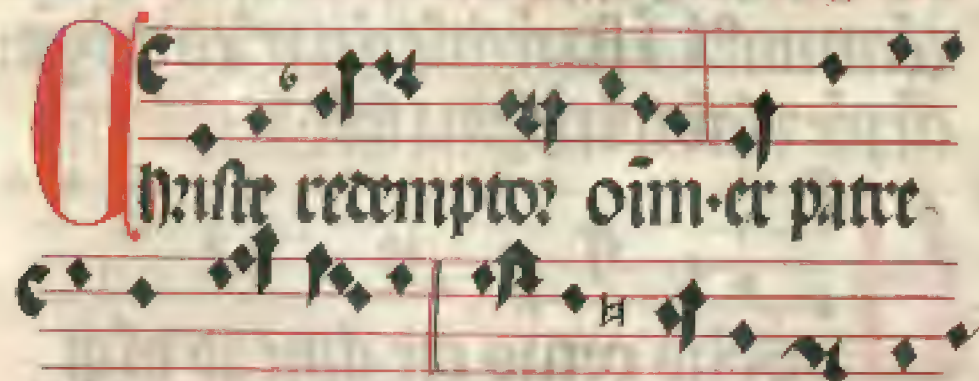 Christe redemptor oīm·ex patre